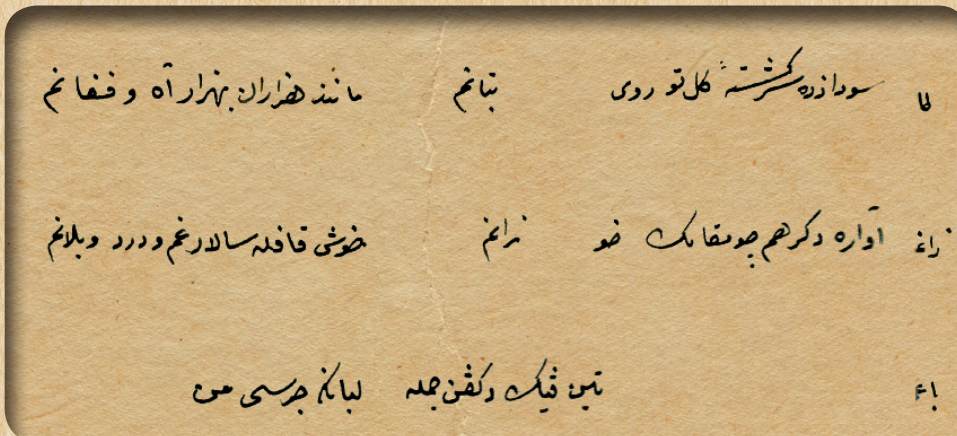 لما سودازده سرگشتهٔ کل تو روی بتانم مانند هزاران بهزار آه و فغانم
زانم آواره دکرهم چو مقامک خو زانم خوش قافله سالار غم و درد و بلانم
تین ڤیک دکڤن جمله لبانم جرسی من